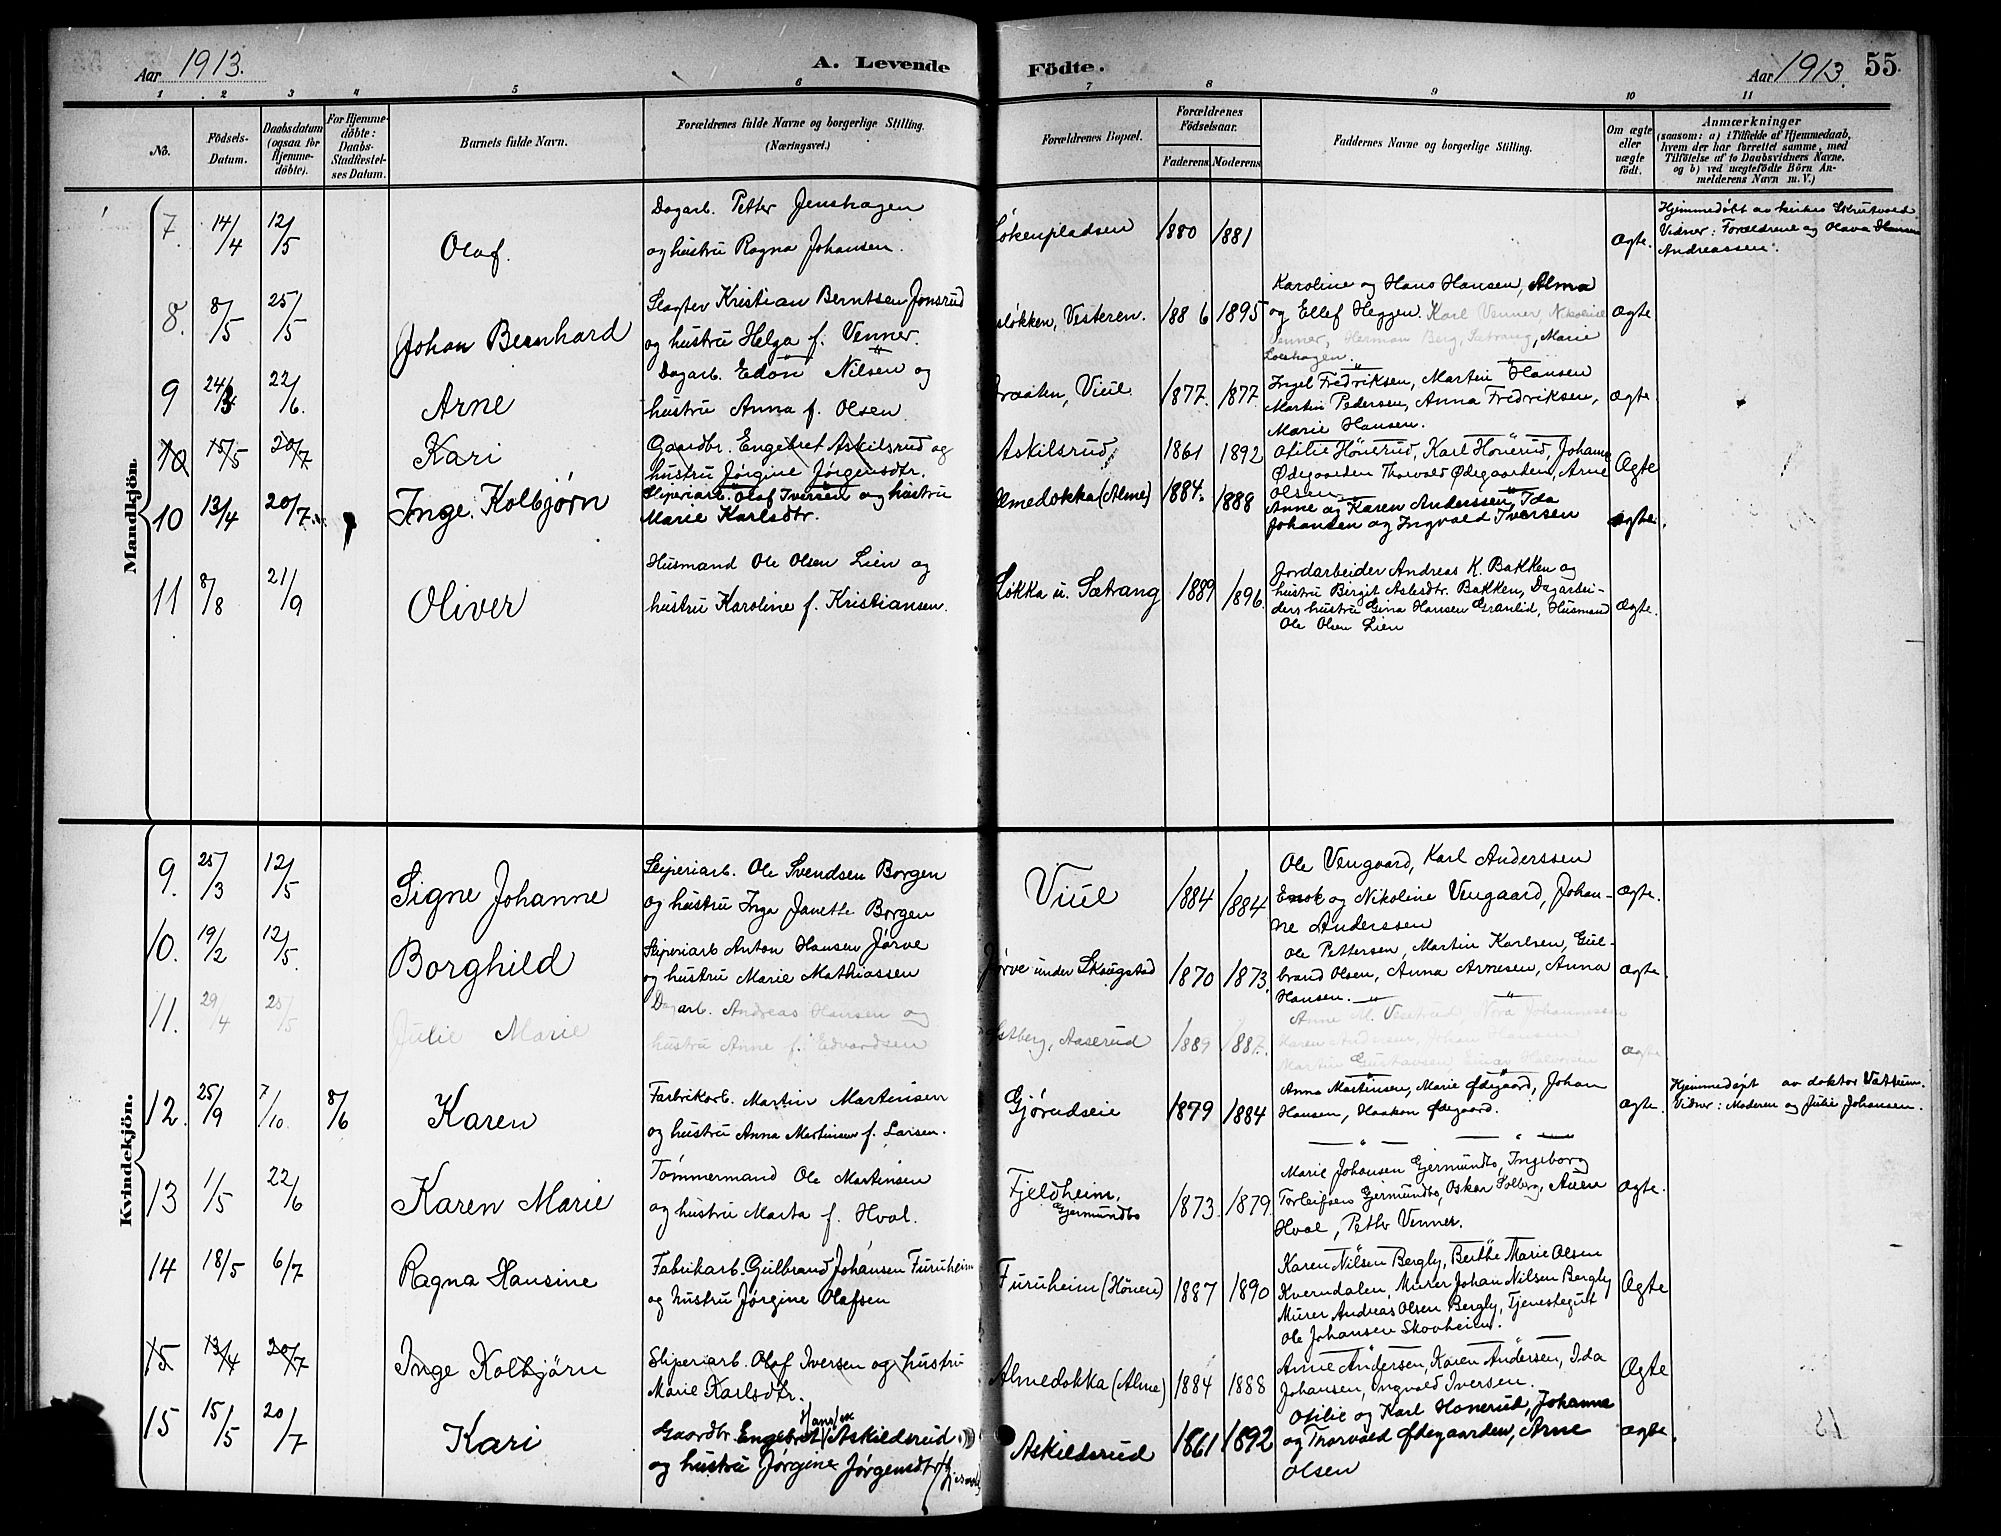 Aar 1913.
A. Levende
Födte.
Aar 1913. 55.
1 2 3 4 5 6 7 8 9 10 11
No.
Födsels-
Datum.
Daabsdatum
(ogsaa for
Hjemme-
döbte).
For Hjemme-
döbte:
Daabs-
Stadfæstel-
ses Datum.
Barnets fulde Navn.
Forældrenes fulde Navne og borgerlige Stilling.
(Næringsvei.)
Forældrenes Bopæl.
Forældrenes
Födselsaar.
Faderens Moderens
Faddernes Navne og borgerlige Stilling.
Om ægte
eller
uægte
födt.
Anmærkninger
(saasom: a) i Tilfælde af Hjemmedaab,
hvem der har forrettet samme, med
Tilföielse af to Daabsvidners Navne,
og b) ved uægtefödte Börn An-
melderens Navn m. V.)
Mandkjön.
7. 14/4 12/5 Olaf.
Dagarb. Petter Jenshagen
og hustru Ragna Johansen.
Løkenpladsen 1880 1881 ægte.
Hjemmedøbt av kirkes. Skrutvold
Vidner: Forældrene og Olava Hansen
Andreassen.
8. 8/5 25/5 Johan Bernhard
Slagter Kristian Berntsen Jonsrud
og hustru Helga f. Venner.
løkken, Vesteren. 1886 1895
Karoline og Hans Hansen, Alma
og Ellef Heggen. Karl Venner, Nikoline
Venner, Herman Berg, Sætrang, Marie
Loeshagen.
ægte
9 24/3 22/6. Arne
Dagarb. Edon Nilsen og
hustru Anna f. Olsen.
Braaten, Viul. 1877. 1877.
Ingel Fredriksen, Martin Hansen
Martin Pedersen, Anna Fredriksen,
Marie Hansen.
ægte.
10 15/5 20/7 Kari
Gaardbr. Engebret Askilsrud og
hustru Jørgine Jørgensdtr.
Askilsrud 1861 1892
Otilie Hönerud, Karl Hönerud, Johanne
Ødegaarden Thorvald Ødegaarden, Arne
Olsen
Ægte
10 13/4 20/7. Inge. Kolbjørn
Sliperiarb. Olaf Iversen og hustru
Marie Karlsdtr.
Almedokka (Alme) 1884. 1888
Anne og Karen Anderssen, Ida
Johansen og Ingvald Iversen
ægte.
11 8/8 21/9 Oliver
Husmand Ole Olsen Lien og
hustru Karoline f. Kristiansen.
Løkka u. Sætrang 1889 1896.
Jordarbeider Andreas K. Bakken og
hustru Birgit Aslesdtr. Bakken, Dagarbei-
ders hustru Gina Hansen Granlid, Husmand
Ole Olsen Lien
ægte.
Kvindekjön.
9. 25/3 12/5 Signe Johanne
Sliperiarb. Ole Svendsen Borgen
og hustru Inga Janette Borgen
Viul 1884 1884
Ole Vengaard, Karl Anderssen
Enok og Nikoline Vengaard, Johan-
ne Anderssen
ægte.
10. 19/2 12/5. Borghild
Sliperiarb Anton Hansen Jørve
og hustru Marie Mathiassen
Jørve under Skougstad 1870 1873.
Ole Pettersen, Martin Karlsen, Gul-
brand Olsen, Anna Arnesen, Anna
Hansen.
ægte.
11. 29/4 25/5 Julie Marie
Dagarb. Andreas Hansen og
hustru Anne f. Edvardsen
Østberg, Aaserud 1889 1887.
Anne M. Vesetrud, Nora Johannessen
Karen Andersen, Johan Hansen
Martin Gustavsen, Einar Halvorsen
ægte
12. 25/9 7/10. 8/6 Karen
Fabrikarb. Martin Martinsen
og hustru Anna Martinsen f. Larsen.
Gjørudseie 1879 1884
Anna Martinsen, Marie Ødegaard, Johan
Hansen, Haakon Ødegaard.
ægte.
Hjemmedøpt av doktor Vattum.
Vidner: Moderen og Julie Johansen.
13 1/5 22/6 Karen Marie
Tømmermand Ole Martinsen
og hustru Marta f. Hval.
Fjeldheim,
Gjermundbo
1873. 1879.
Marie Johansen Gjermundbo, Ingeborg
Torleifsen Gjermundbo, Oskar Solberg, Auen
Hval, Petter Venner.
ægte.
14 18/5 6/7 Ragna Hansine
Fabrikarb. Gulbrand Johansen Furuheim
og hustru Jørgine Olafsen
Furuheim (Hönen) 1887 1890
Karen Nilsen Bergly, Berthe Marie Olsen
Kverndalen, Murer Johan Nilsen Bergly
Murer Andreas Olsen Bergly, Tjenestegut
Ole Johansen Skovheim.
Ægte
15 13/4 20/7 Inge Kolbjörn
Sliperiarb. Olaf Iversen og hustru
Marie Karlsdtr.
Almedokka (Alme) 1884 1888
Anne Andersen, Karen Andersen, Ida
Johansen, Ingvald Iversen.
Ægte
15 15/5 20/7 Kari
Gaardbr. Engebret Hansen Askildsrud
og hustru Jørgine Jørgensdtr
Askildsrud 1861 1892
Otilie og Karl Hönerud, Johanne
og Thorvald Ødegaarden, Arne
Olsen
ægte.